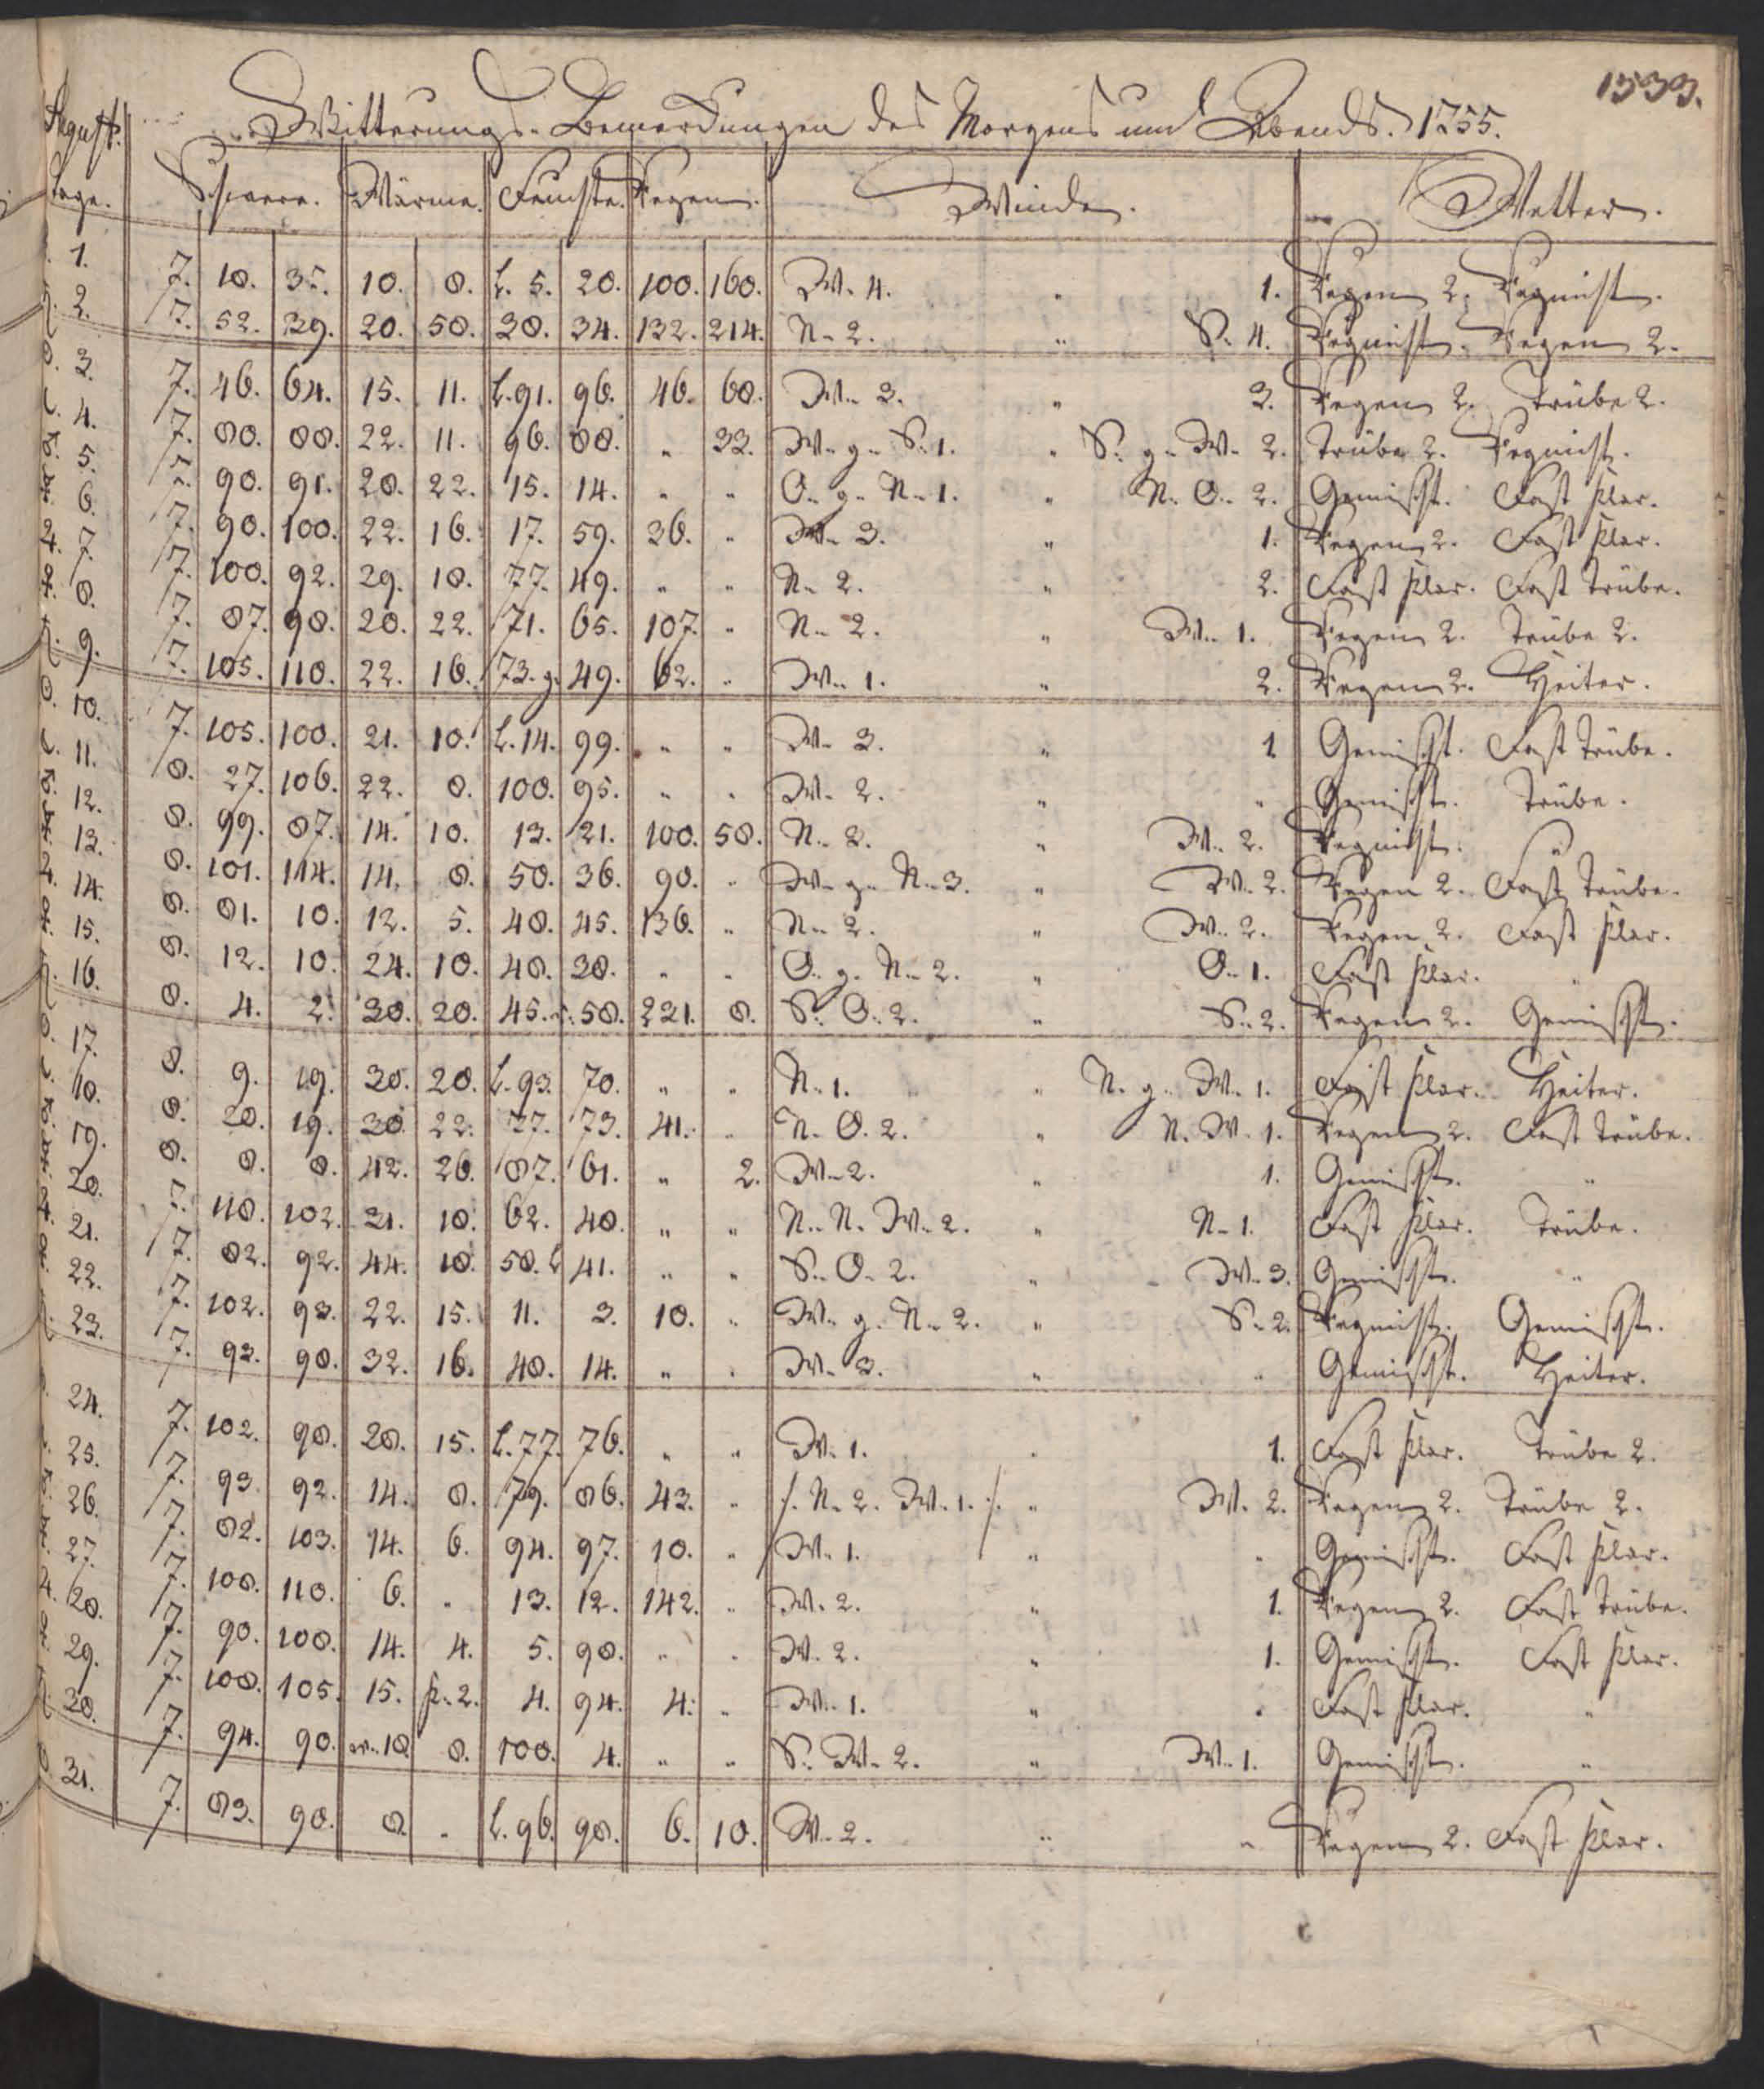 1533.
August. Witterungs-Bemerckungen des Morgens und Abends. 1755.
Tage. Schwere. Wärme. Feuchte. Regen. Winde. Wetter.
1. 7. 18. 35. 10. 8. L. 5. 20. 100. 160. W. 4. " 1. Regen 2. Regnicht.
2. 7. 52. 39. 20. 50. 38. 34. 132. 214. N. 2. " S. 4. Regnicht. Regen 2.
3. 7. 46. 64. 15. 11. L. 91. 96. 46. 68. W. 3. " 3. Regen 2. Trübe 2.
4. 7. 80. 88. 22. 11. 96. 88. " 33. W. g. S. 1. " S. g. W. 2. Trübe 2. Regnicht.
5. 7. 90. 91. 28. 22. 15. 14. " " O. g. N. 1. " N. O. 2. Gemischt. Fast klar.
6. 7. 90. 100. 22. 16. 17. 59. 36. " W. 3. " 1. Regen 2. Fast klar.
7. 7. 100. 92. 29. 18. 77. 49. " " N. 2. " 2. Fast klar. Fast trübe.
8. 7. 87. 98. 20. 22. 71. 65. 107. " N. 2. " W. 1. Regen 2. Trübe 2.
9. 7. 105. 110. 22. 16. 73. g. 49. 62. " W. 1. " 2. Regen 2. Heiter.
10. 7. 105. 100. 21. 10. L. 14. 99. " " W. 3. " 1. Gemischt. Fast trübe.
11. 8. 27. 106. 22. 8. 100. 95. " " W. 2. " " Gemischt. Trübe.
12. 8. 99. 87. 14. 10. 13. 21. 100. 58. N. 2. " W. 2. Regnicht. "
13. 8. 101. 114. 14. 8. 50. 36. 90. " W. g. N. 3. " W. 2. Regen 2. Fast trübe.
14. 8. 81. 10. 12. 5. 48. 45. 136. " N. 2. " W. 2. Regen 2. Fast klar.
15. 8. 12. 10. 24. 10. 48. 38. " " O. g. N. 2. " O. 1. Fast klar. "
16. 8. 4. 2. 30. 20. 45. 58. 221. 8. S. O. 2. " S. 2. Regen 2. Gemischt.
17. 8. 9. 19. 30. 20. L. 93. 70. " " N. 1. " N. g. W. 1. Fast klar. Heiter.
18. 8. 20. 19. 30. 22. 77. 73. 41. " N. O. 2. " N. W. 1. Regen 2. Fast trübe.
19. 8. 8. 8. 42. 26. 87. 61. " 2. W. 2. " 1. Gemischt. "
20. 7. 118. 102. 31. 18. 62. 40. " " N. N. W. 2. " N. 1. Fast klar. Trübe.
21. 7. 82. 92. 44. 18. 58. L 41. " " S. O. 2. " W. 3. Gemischt. "
22. 7. 102. 93. 22. 15. 11. 3. 10. " W. g. N. 2. " S. 2. Regnicht. Gemischt.
23. 7. 93. 90. 32. 16. 48. 14. " " W. 3. " " Gemischt. Heiter.
24. 7. 102. 98. 28. 15. L. 77. 76. " " W. 1. " 1. Fast klar. Trübe 2.
25. 7. 93. 92. 14. 8. 79. 86. 43. " /. N. 2. W. 1. :/. " W. 2. Regen 2. Trübe 2.
26. 7. 82. 103. 14. 6. 94. 97. 10. " W. 1. " " Gemischt. Fast klar.
27. 7. 108. 110. 6. " 13. 12. 142. " W. 2. " 1. Regen 2. Fast trübe.
28. 7. 90. 100. 14. 4. 5. 98. " " W. 2. " 1. Gemischt. Fast klar.
29. 7. 108. 105. 15. k. 2. 4. 94. 4. " W. 1. " " Fast klar. "
30. 7. 94. 90. w. 18. 8. 100. 4. " " S. W. 2. " W. 1. Gemischt. "
31. 7. 83. 90. 8. " L. 96. 98. 6. 10. W. 2. " " Regen 2. Fast klar.